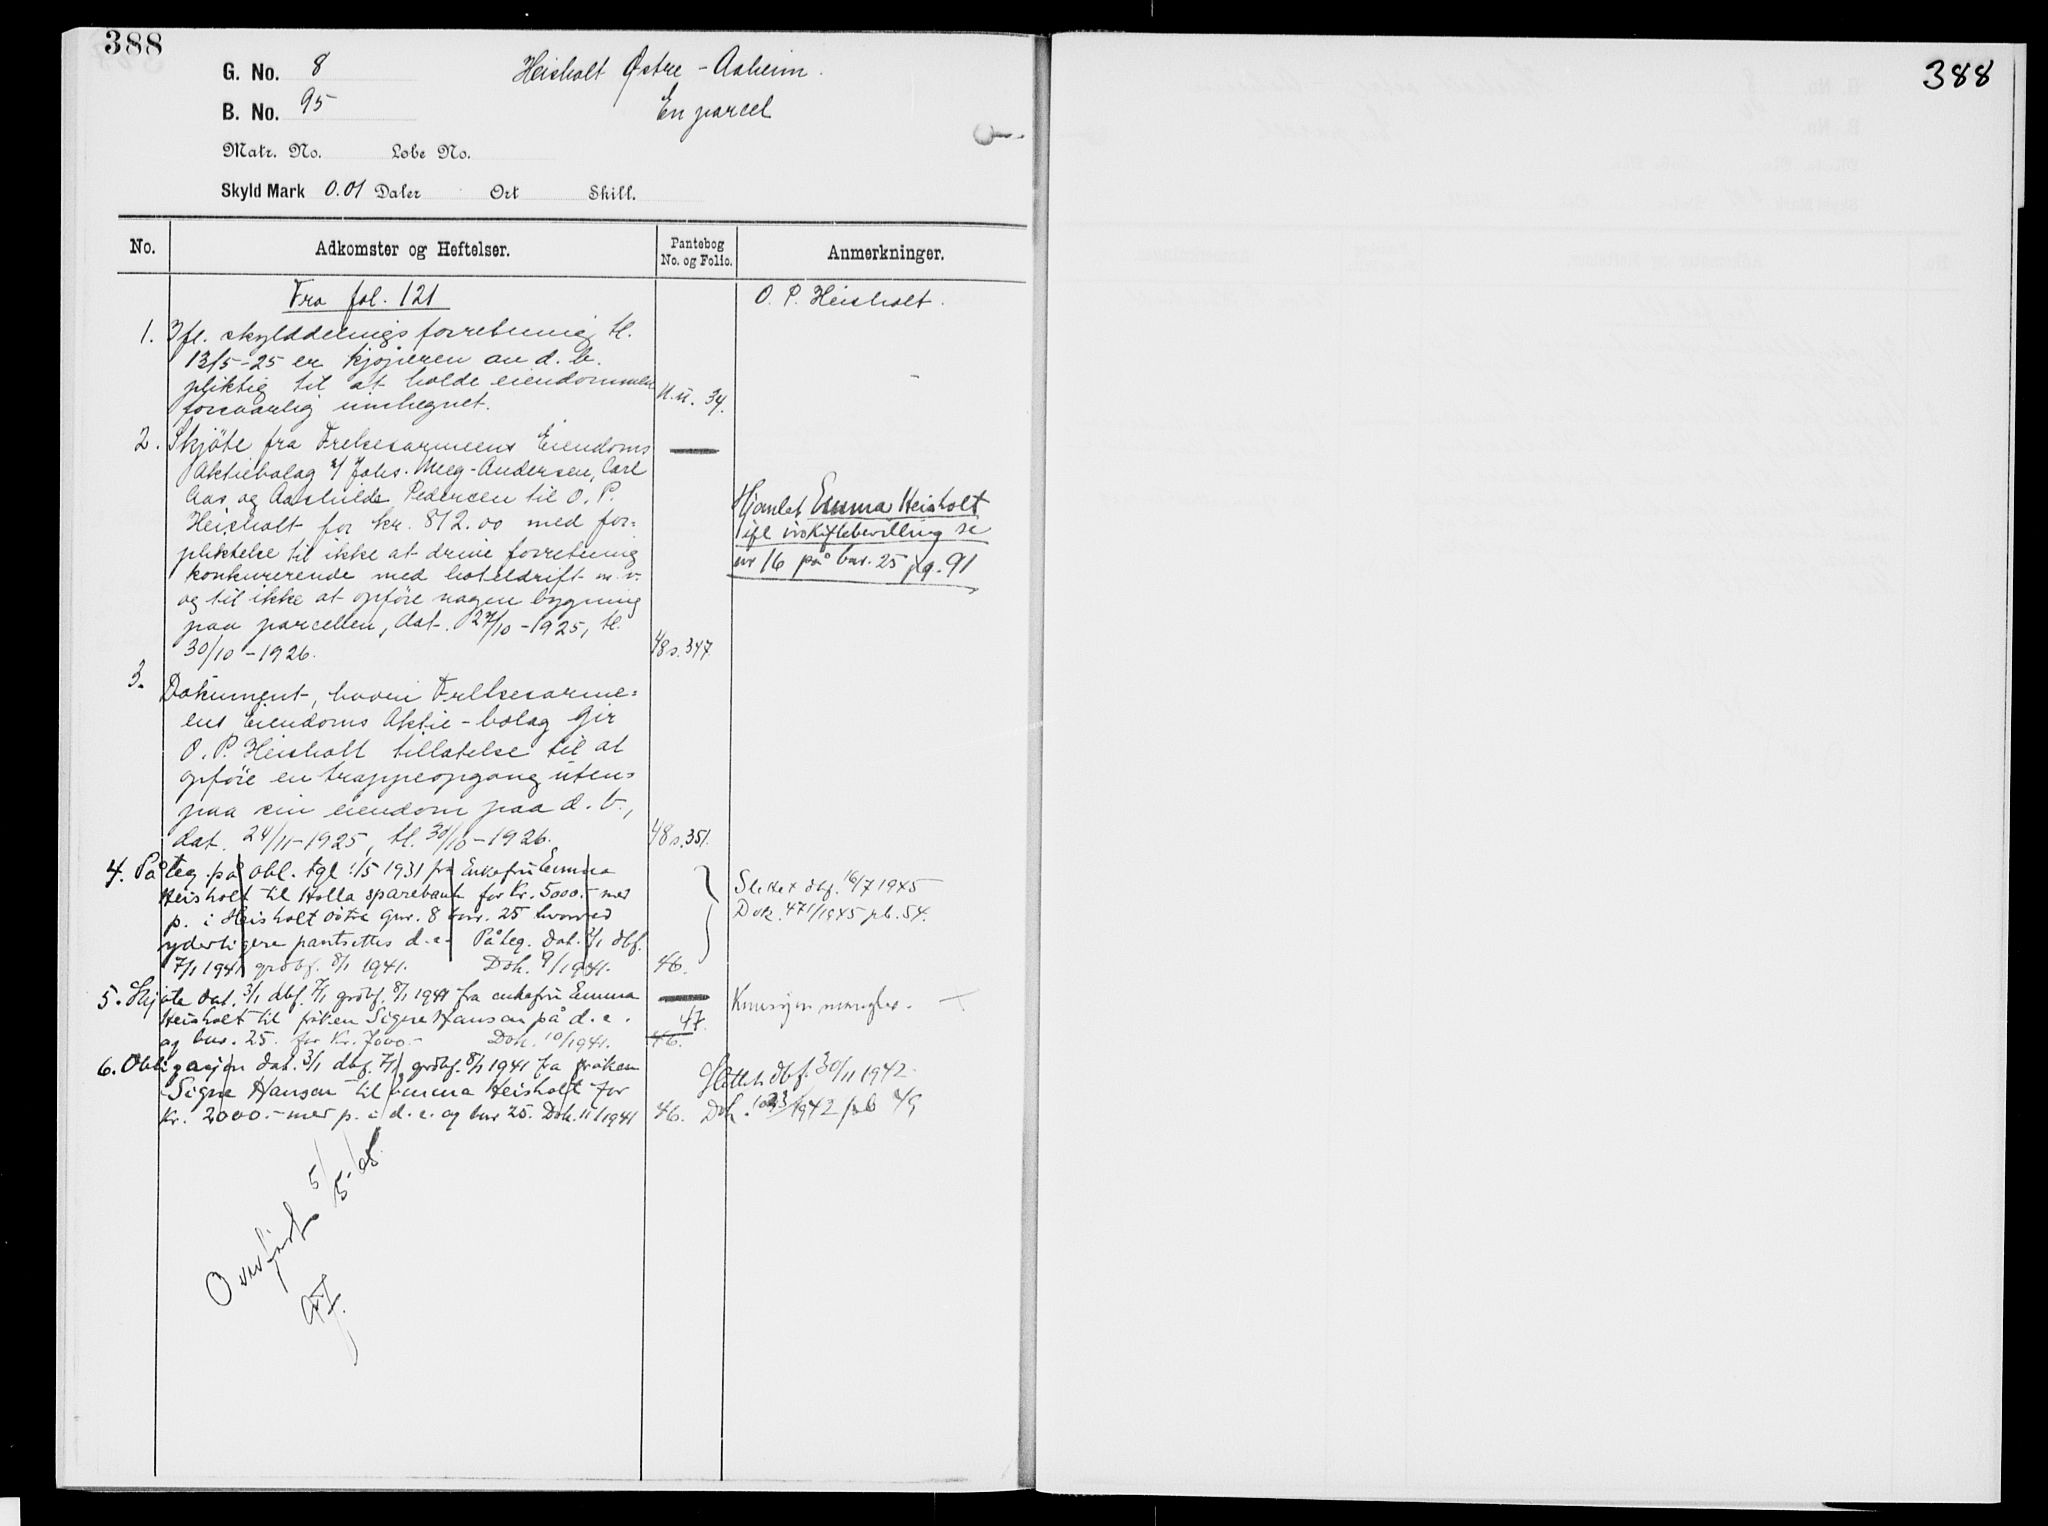 388
G. No. 8
Heisholt Østre - Aaheim.
B. No. 95
En parcel
Matr. No. Løbe No.
Skyld Mark 0.01 Daler Ort Skill.
No.
Adkomster og Heftelser.
Pantebog
No. og Folio.
Anmerkninger.
Fra fol. 121
O. P. Heisholt.
1. Ifl. skylddelingsforretning tl.
13/5-25 er kjøperen av d. b.
pliktig til at holde eiendommen
forsvarlig innhegnet.
N.u. 34.
2. Skjøte fra Frelsesarmeens Eiendoms
Aktiebolag v/ Johs. Meeg-Andersen, Carl
Aas og Aashilde Pedersen til O. P.
Heisholt for kr. 812.00 med for=
pliktelse til ikke at drive forretning
konkurerende med hoteldrift m. v.
og til ikke at opføre nogen bygning
paa parcellen, dat. 27/10-1925, tl.
30/10-1926.
48 s. 347
Hjemlet Emma Heisholt
ifl uskiftebevilling se
nr 16 på bnr. 25 pg. 91
3. Dokument, hvori Frelsesarme=
ens Eiendoms Aktie-bolag gir
O. P. Heisholt tillatelse til at
opføre en trappeopgang uten=
paa sin eiendom paa d. b.,
dat. 24/11-1925, tl. 30/10-1926.
48 s. 351.
4. Påteg. på obl. tgl 1/5 1931 fra Enkefru Emma
Heisholt til Holla sparebank for Kr. 5000.- mer
p. i Heisholt østre gnr. 8 bnr. 25 hvorved
yderligere pantsettes d. e. Påteg. dat. 2/1 dbf.
7/1 1941 grdbf. 8/1 1941. Dok. 9/1941.
46.
Slettet dbf. 16/7 1945
Dok. 471/1945 pb. 54.
5. Skjøte dat. 3/1 dbf. 7/1 grdbf. 8/1 1941 fra enkefru Emma
Heisholt til frøken Signe Hansen på d. e.
og bnr. 25. for Kr. 7000.- Dok. 10/1941.
47.
46.
Konsesjon mangler.
6. Obligasjon dat. 3/1 dbf. 7/1, grdbf. 8/1 1941 fra frøken
Signe Hansen til Emma Heisholt for
Kr. 2000.- mer p. i d. e. og bnr 25. Dok. 11/1941
46.
Slettet dbf. 30/11 1942.
Dok. 1023/1942 pb 49
Overført 5/5-
388